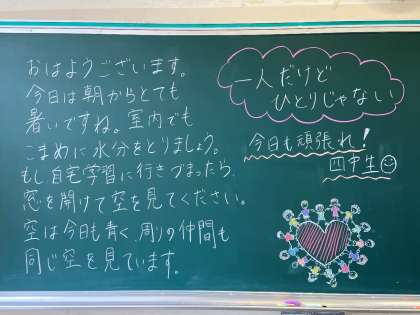 おはようございます。
今日は朝からとても
暑いですね。室内でも
こまめに水分をとりましょう。
もし自宅学習に行きづまったら、
窓を開けて空を見てください。
空は今日も青く、周りの仲間も
同じ空を見ています。
一人だけど
ひとりじゃない
今日も頑張れ!
四中生